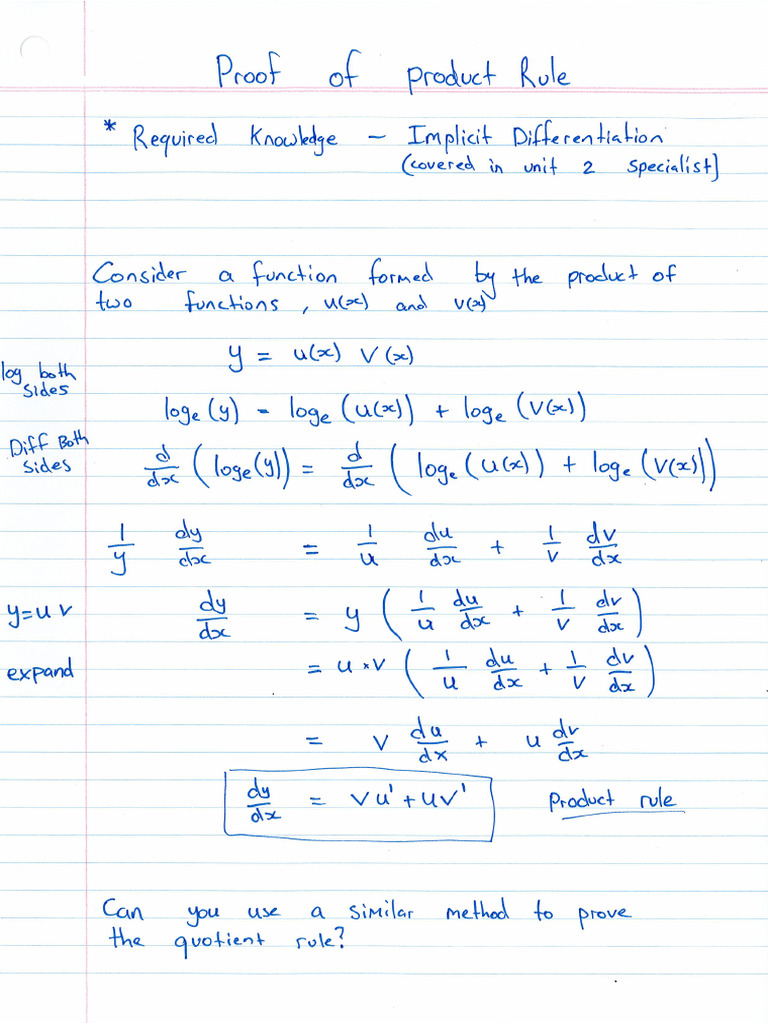 Proof of product Rule
* Required Knowledge - Implicit Differentiation
(covered in unit 2 specialist]
Consider a function formed by the product of
two functions, u(x) and v(x)
y = u(x) v(x)
log both
sides
logₑ(y) = logₑ(u(x)) + logₑ(v(x))
Diff Both
sides
d/dx (logₑ(y)) = d/dx (logₑ(u(x)) + logₑ(v(x)))
1/y dy/dx = 1/u du/dx + 1/v dv/dx
y=uv
dy/dx = y (1/u du/dx + 1/v dv/dx)
expand
= u*v (1/u du/dx + 1/v dv/dx)
= v du/dx + u dv/dx
dy/dx = vu' + uv' Product rule
Can you use a similar method to prove
the quotient rule?